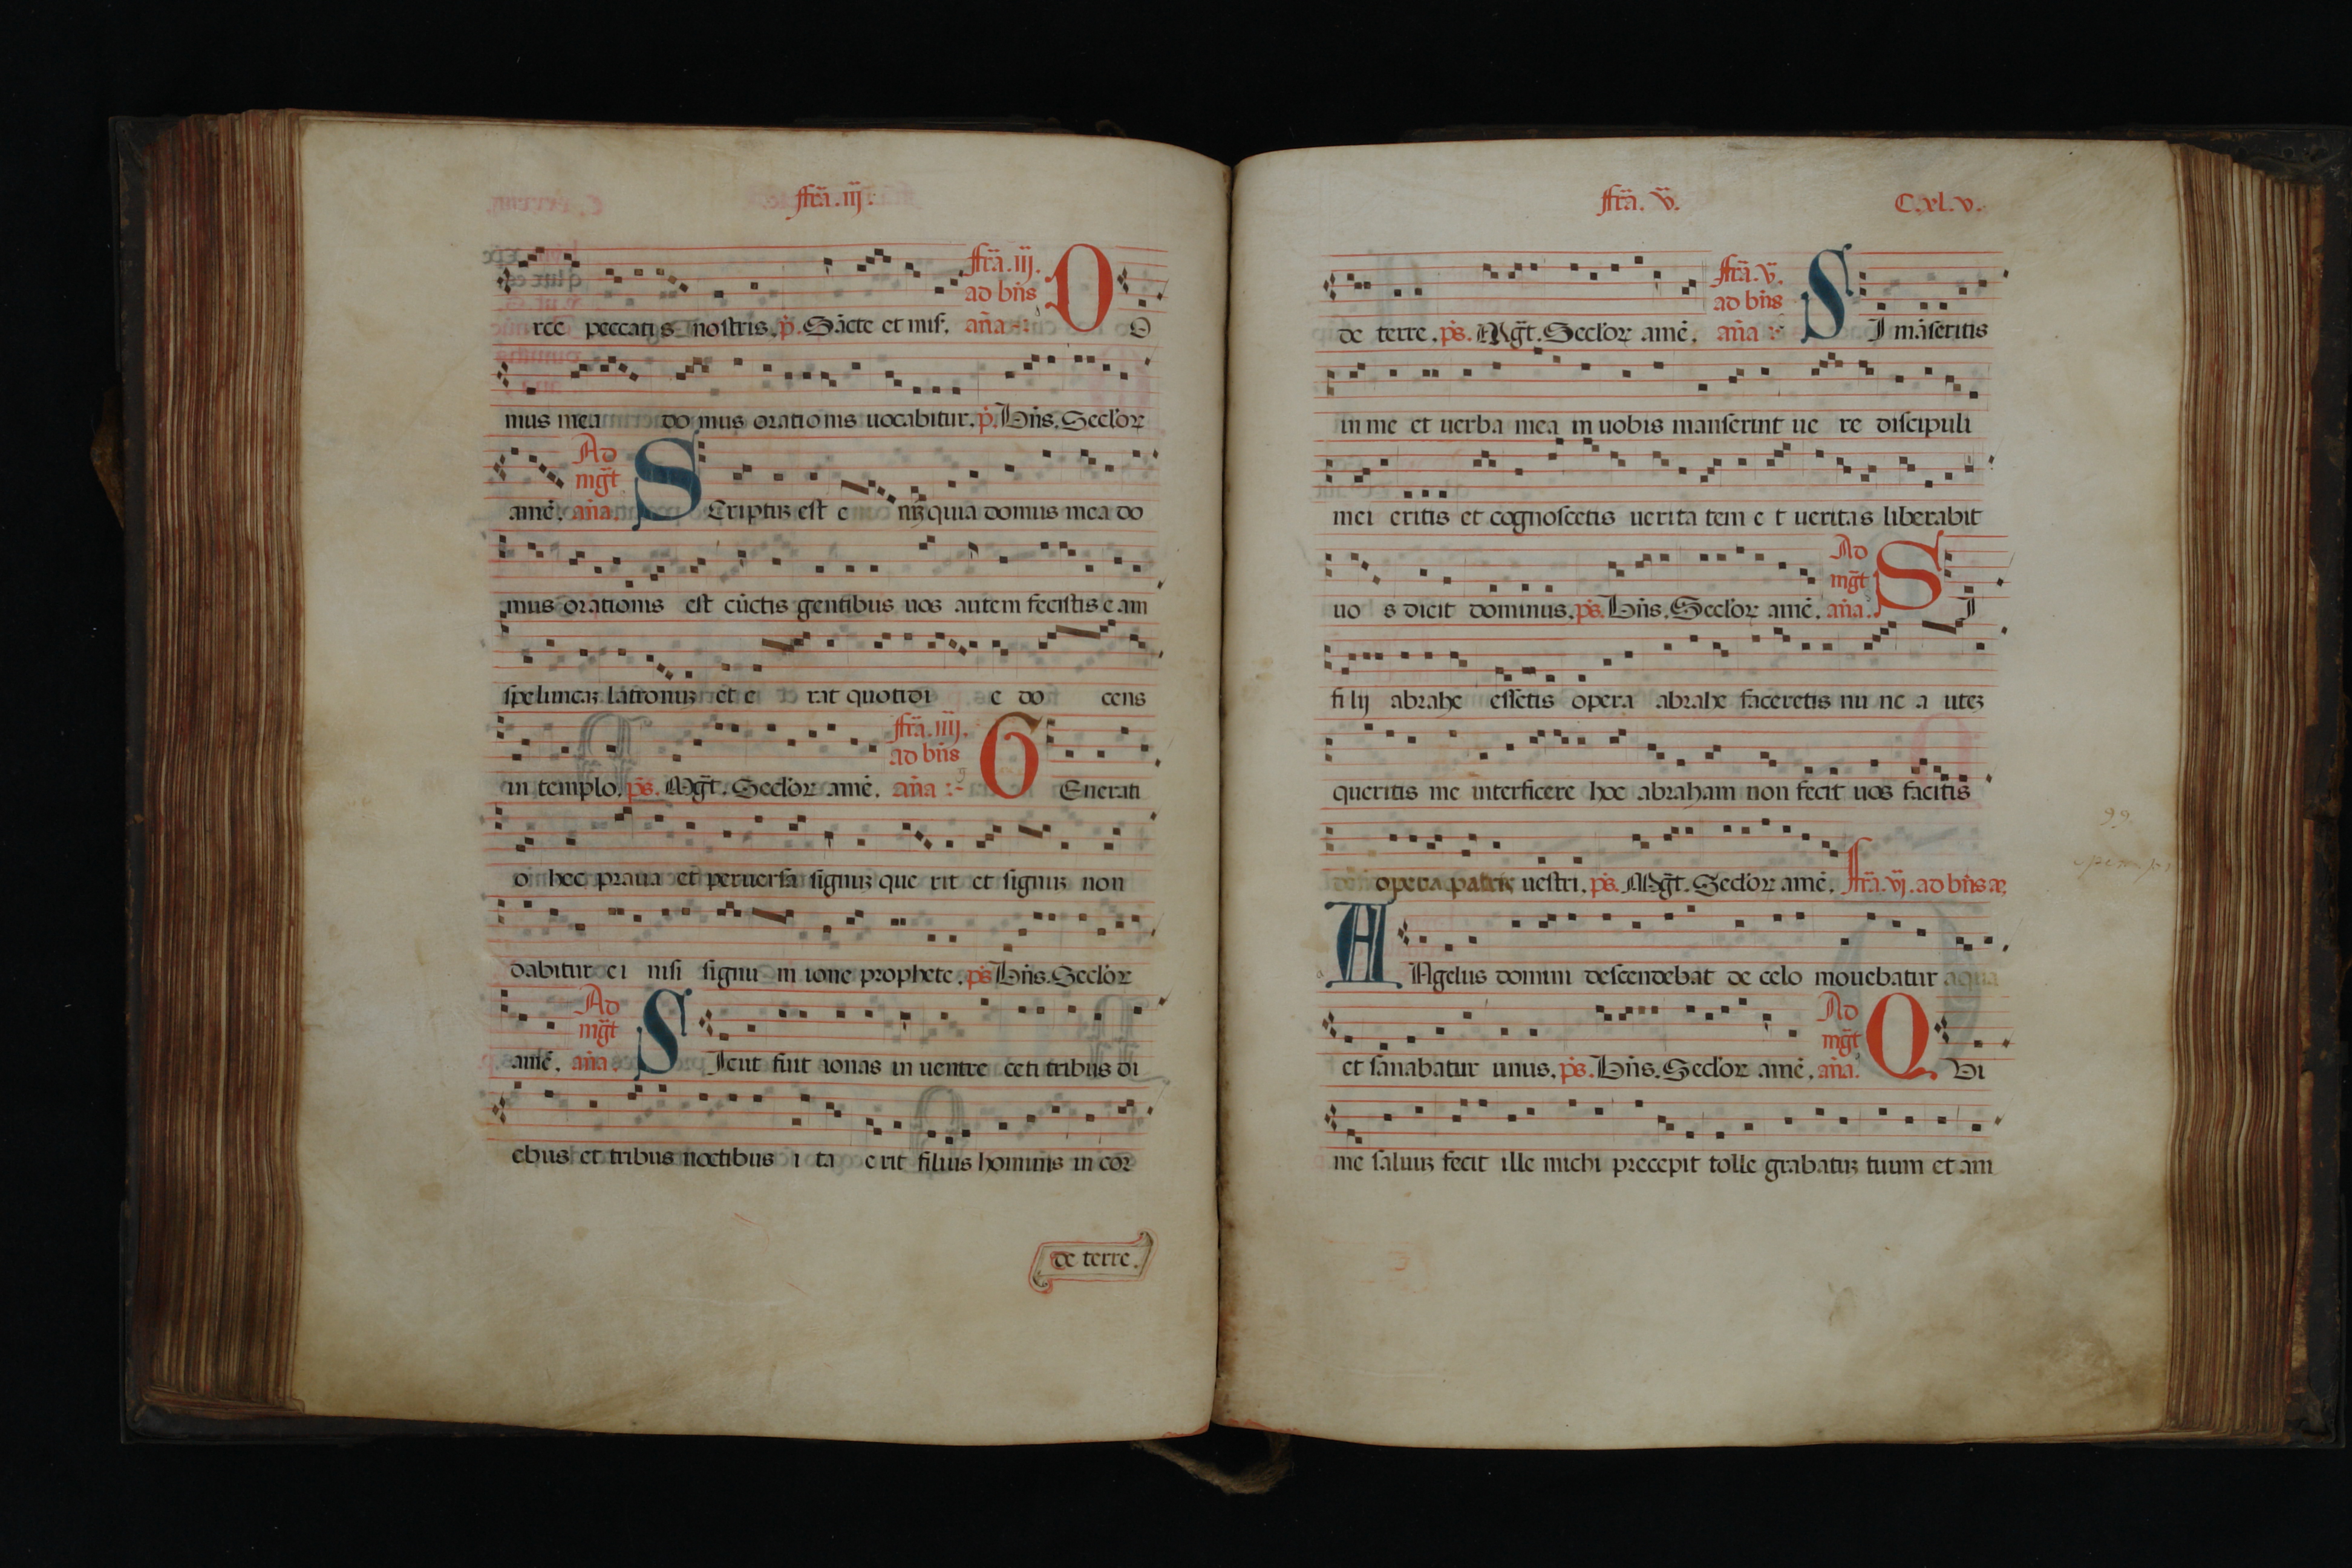 ffrã. iij.
rce peccatis nostris. p̃. Sãcte et mis̃.
ffrã. iij.
ad bñs
aña
O O
mus mea do mus orationis uocabitur. p̃. Bñs. Seclor
amẽ.
Ad
mg̃t
aña.
S Criptuȝ est e niȝ quia domus mea do
mus orationis est cũctis gentibus uos autem fecistis eam
speluncaȝ latronuȝ et e rat quotidi e do cens
in templo. ps̃. Mg̃t. Seclor amẽ.
ffrã. iiij.
ad bñs
aña
G Enerati
o hec praua et peruersa signuȝ que rit et signuȝ non
dabitur ei nisi signu m ione prophete. ps̃ Bñs. Seclor
amẽ.
Ad
mg̃t
aña.
S Icut fuit ionas in uentre ceti tribus di
ebus et tribus noctibus i ta erit filius hominis in cor
de terre.
ffrã. v.
C. xl. v.
de terre. ps̃. Mg̃t. Seclor amẽ.
ffrã. v.
ad bñs
aña
S I mãseritis
in me et uerba mea in uobis manserint ue re discipuli
mei eritis et cognoscetis uerita tem e t ueritas liberabit
uo s dicit dominus. ps̃. Bñs. Seclor amẽ.
Ad
mg̃t
aña.
S I
fi lij abrahe essetis opera abrahe faceretis nu nc a uteȝ
queritis me interficere hoc abraham non fecit uos facitis
opera patris uestri. ps̃. Mg̃t. Seclor amẽ. ffrã. vj. ad bñs
A Ngelus domini descendebat de celo mouebatur aqua
et sanabatur unus. ps̃. Bñs. Seclor amẽ.
Ad
mg̃t
aña.
Q Ui
me saluuȝ fecit ille michi precepit tolle grabatuȝ tuum et am
99